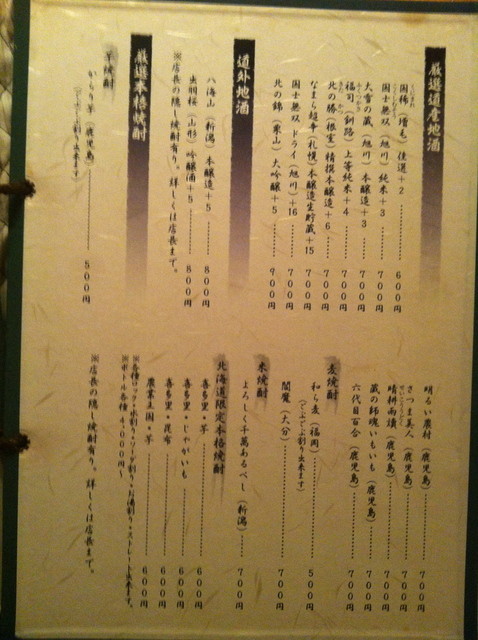 厳選道産地酒
国稀（増毛）佳選＋2 ……… 600円
国士無双（旭川）純米＋3 ……… 700円
大雪の蔵（旭川）本醸造＋3 ……… 700円
福司（釧路）上等純米＋4 ……… 700円
北の勝（根室）精撰本醸造＋6 ……… 700円
なまら超辛（札幌）本醸造生貯蔵＋15 ……… 700円
国士無双 ドライ（旭川）＋16 ……… 700円
北の錦（栗山）大吟醸＋5 ……… 900円
道外地酒
八海山（新潟）本醸造＋5 ……… 800円
出羽桜（山形）吟醸酒＋5 ……… 800円
※店長の隠し焼酎有り。詳しくは店長まで。
厳選本格焼酎
芋焼酎
からり芋（鹿児島） ……… 500円
（でぶでぶ割り出来ます）
明るい農村（鹿児島） ……… 700円
さつま美人（鹿児島） ……… 700円
晴耕雨讀（鹿児島） ……… 700円
蔵の師魂いもいも（鹿児島） ……… 700円
六代目百合（鹿児島） ……… 700円
麦焼酎
和ら麦（福岡） ……… 500円
（でぶでぶ割り出来ます）
閻魔（大分） ……… 700円
米焼酎
よろしく千萬あるべし（新潟） ……… 700円
北海道限定本格焼酎
喜多里・芋 ……… 600円
喜多里・じゃがいも ……… 600円
喜多里・昆布 ……… 600円
農業王国・芋 ……… 600円
※各種ロック・水割り・ソーダ割り・お湯割り・ストレート出来ます。
※ボトル各種4,000円～
※店長の隠し焼酎有り。詳しくは店長まで。